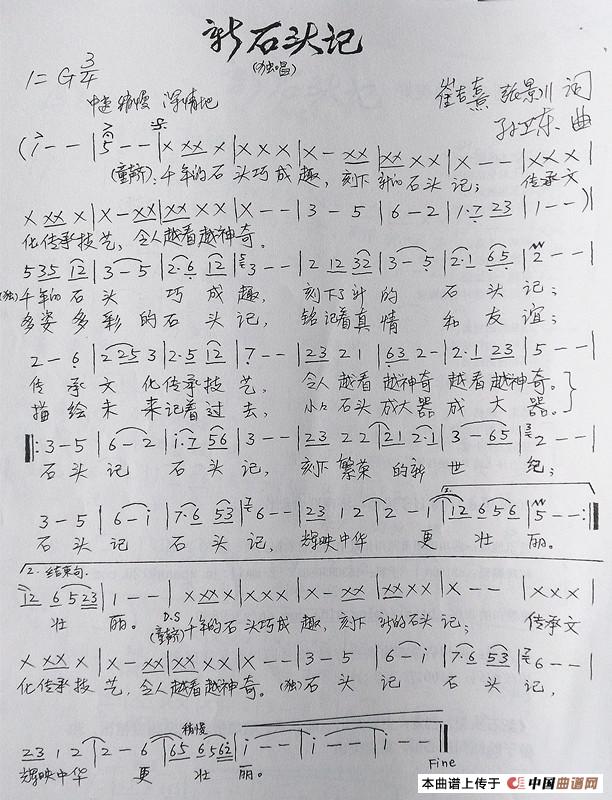 新石头记
(独唱)
1=G 3/4
中速稍慢 深情地
崔吉熹 张景川 词
孙卫东 曲
(i - - | 5 - - | X XX X | X X X | X - XX | XX X X | X - - | X X X |
(童声): 千年的石头巧成趣, 刻下新的石头记; 传承文
X XX X | X - XX | XX X X | X - - | 3 - 5 | 6 - 2 | 1·7 23 | 1 - - ) |
化传承技艺, 令人越看越神奇。
535 12 | 3 - 5 | 2·6 12 | 3 - - | 2 12 32 | 3 - 5 | 2·1 65 | 2 - - |
(独) 千年的石头 巧成趣, 刻下了新的石头记;
多姿多彩的石头记, 铭记着真情和友谊;
2 - 6 | 225 3 | 2·5 12 | 7 - - | 23 2 1 | 63 2 - | 2·1 23 | 5 - - |
传承文化传承技艺, 令人越看越神奇越看越神奇。
描绘未来记着过去, 小小石头成大器成大器。
|: 3 - 5 | 6 - 2 | i·7 56 | 3 - - | 23 2 2 | 21 2·1 | 3 - 65 | 2 - - |
石头记石头记, 刻下繁荣的新世纪;
1.
3 - 5 | 6 - i | 7·6 53 | 6 - - | 23 1 2 | 2 - i | 12 6 56 | 5 - - :|
石头记石头记, 辉映中华更壮丽。
2. 结束句.
12 6 5 23 | 1 - - | X XX X | X X X | X - XX | XX X X | X - - | X X X |
壮丽。 D.S (童声) 千年的石头巧成趣, 刻下新的石头记; 传承文
X XX X | X - XX | XX X X | X - - | 3 - 5 | 6 - i | 7·6 53 | 6 - - |
化传承技艺, 令人越看越神奇。 (独) 石头记石头记,
稍慢
23 1 2 | 2 - 6 | 65 6 5 62 | i - - | i - - | i - - ||
辉映中华更壮丽。
Fine
本曲谱上传于 中国曲谱网